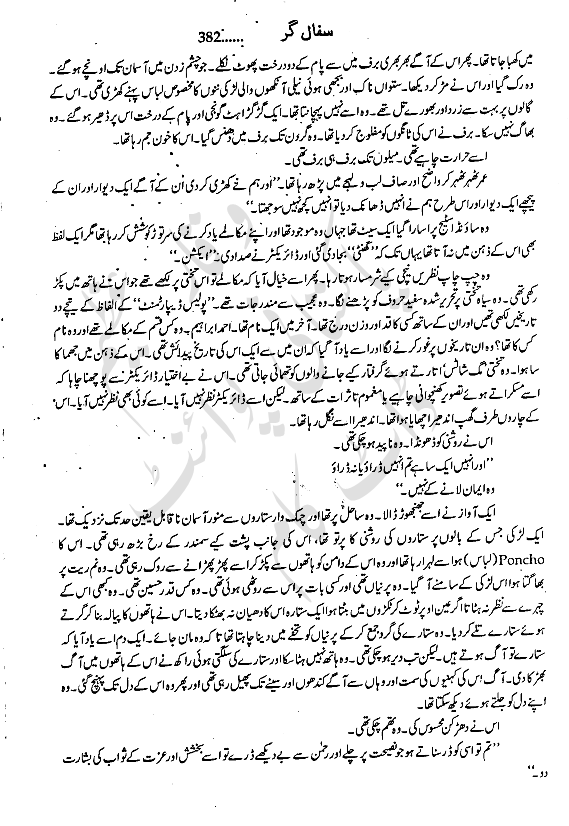 سفال گر ......382
میں کھبا جاتا تھا۔ پھر اس کے آگے بھر بھری برف میں سے پام کے دو درخت پھوٹ نکلے۔ جو چشم زدن میں آسمان تک اونچے ہو گئے۔
وہ رک گیا اور اس نے مڑ کر دیکھا۔ ستواں ناک اور بجھی ہوئی نیلی آنکھوں والی لڑکی ننوں کا مخصوص لباس پہنے کھڑی تھی۔ اس کے
گالوں پر بہت سے زرد اور بھورے تل تھے۔ وہ اسے نہیں پہچانتا تھا۔ ایک گڑگڑاہٹ گونجی اور پام کے درخت اس پر ڈھیر ہو گئے۔ وہ
بھاگ نہیں سکا۔ برف نے اس کی ٹانگوں کو مفلوج کر دیا تھا۔ وہ گردن تک برف میں دھنس گیا۔ اس کا خون جم رہا تھا۔
اسے حرارت چاہیے تھی۔ میلوں تک برف ہی برف تھی۔
عمر ٹھہر ٹھہر کر واضح اور صاف لب و لہجے میں پڑھ رہا تھا۔ ”اور ہم نے کھڑی کر دی اُن کے آگے ایک دیوار اور ان کے
پیچھے ایک دیوار اور اس طرح ہم نے انہیں ڈھانک دیا تو انہیں کچھ نہیں سوجھتا۔“
وہ ساؤنڈ اسٹیج پر اسارا گیا ایک سیٹ تھا جہاں وہ موجود تھا اور اپنے مکالمے یاد کرنے کی سر توڑ کوشش کر رہا تھا مگر ایک لفظ
بھی اس کے ذہن میں نہ آتا تھا یہاں تک کہ ”گھنٹی“ بجا دی گئی اور ڈائریکٹر نے صدا دی۔ ”ایکشن۔“
وہ چپ چاپ نظریں نیچی کیے شرمسار ہوتا رہا۔ پھر اسے خیال آیا کہ مکالمے تو اس تختی پر لکھے تھے جو اس نے ہاتھ میں پکڑ
رکھی تھی۔ وہ سیاہ تختی پر تحریر شدہ سفید حروف کو پڑھنے لگا۔ وہ عجیب سے مندرجات تھے۔ ”پولیس ڈیپارٹمنٹ“ کے الفاظ کے نیچے دو
تاریخیں لکھی تھیں اور ان کے ساتھ کس کا قد اور وزن درج تھا۔ آخر میں ایک نام تھا۔ احد ابراہیم۔ وہ کس قسم کے مکالمے تھے اور وہ نام
کس کا تھا؟ وہ ان تاریخوں پر غور کرنے لگا اور اسے یاد آ گیا کہ ان میں سے ایک اس کی تاریخِ پیدائش تھی۔ اس کے ذہن میں جھماکا
سا ہوا۔ وہ تختی مگ شاٹس اُتارتے ہوئے گرفتار کیے جانے والوں کو تھمائی جاتی تھی۔ اس نے بے اختیار ڈائریکٹر سے پوچھنا چاہا کہ
اسے مسکراتے ہوئے تصویر کھنچوانی چاہیے یا مغموم تاثرات کے ساتھ۔ لیکن اسے ڈائریکٹر نظر نہیں آیا۔ اسے کوئی بھی نظر نہیں آیا۔ اس
کے چاروں طرف گھپ اندھیرا چھایا ہوا تھا۔ اندھیرا اسے نگل رہا تھا۔
اس نے روشنی کو ڈھونڈا۔ وہ ناپید ہو چکی تھی۔
”اور انہیں ایک سا ہے تم انہیں ڈراؤ یا نہ ڈراؤ
وہ ایمان لانے کے نہیں۔“
ایک آواز نے اسے جھنجھوڑ ڈالا۔ وہ ساحل پر تھا اور چمک دار ستاروں سے منور آسمان ناقابل یقین حد تک نزدیک تھا۔
ایک لڑکی جس کے بالوں پر ستاروں کی روشنی کا پرتو تھا، اس کی جانب پشت کیے سمندر کے رخ بڑھ رہی تھی۔ اس کا
Poncho (لباس) ہوا سے لہرا رہا تھا اور وہ اس کے دامن کو ہاتھوں سے پکڑ کر اسے پھڑپھڑانے سے روک رہی تھی۔ وہ نم ریت پر
بھاگتا ہوا اس لڑکی کے سامنے آ گیا۔ وہ پرنیاں تھی اور کسی بات پر اس سے روٹھی ہوئی تھی۔ وہ کس قدر حسین تھی۔ وہ کبھی اس کے
چہرے سے نظر نہ ہٹاتا اگر عین اوپر ٹوٹ کر ٹکڑوں میں بٹتا ہوا ایک ستارہ اس کا دھیان نہ بھٹکا دیتا۔ اس نے ہاتھوں کا پیالہ بنا کر گرتے
ہوئے ستارے تلے کر دیا۔ وہ ستارے کی گرد جمع کر کے پرنیاں کو تحفے میں دینا چاہتا تھا تاکہ وہ مان جائے۔ ایک دم اسے یاد آیا کہ
ستارے تو آگ ہوتے ہیں۔ لیکن تب دیر ہو چکی تھی۔ وہ ہاتھ نہیں ہٹا سکا اور ستارے کی سلگتی ہوئی راکھ نے اس کے ہاتھوں میں آگ
بھڑکا دی۔ آگ اس کی کہنیوں کی سمت اور وہاں سے آگے کندھوں اور سینے تک پھیل رہی تھی اور پھر وہ اس کے دل تک پہنچ گئی۔ وہ
اپنے دل کو جلتے ہوئے دیکھ سکتا تھا۔
اس نے دھڑکن محسوس کی۔ وہ تھم چکی تھی۔
”تم تو اسی کو ڈر سناتے ہو جو نصیحت پر چلے اور رحمٰن سے بے دیکھے ڈرے تو اسے بخشش اور عزت کے ثواب کی بشارت
دو۔“